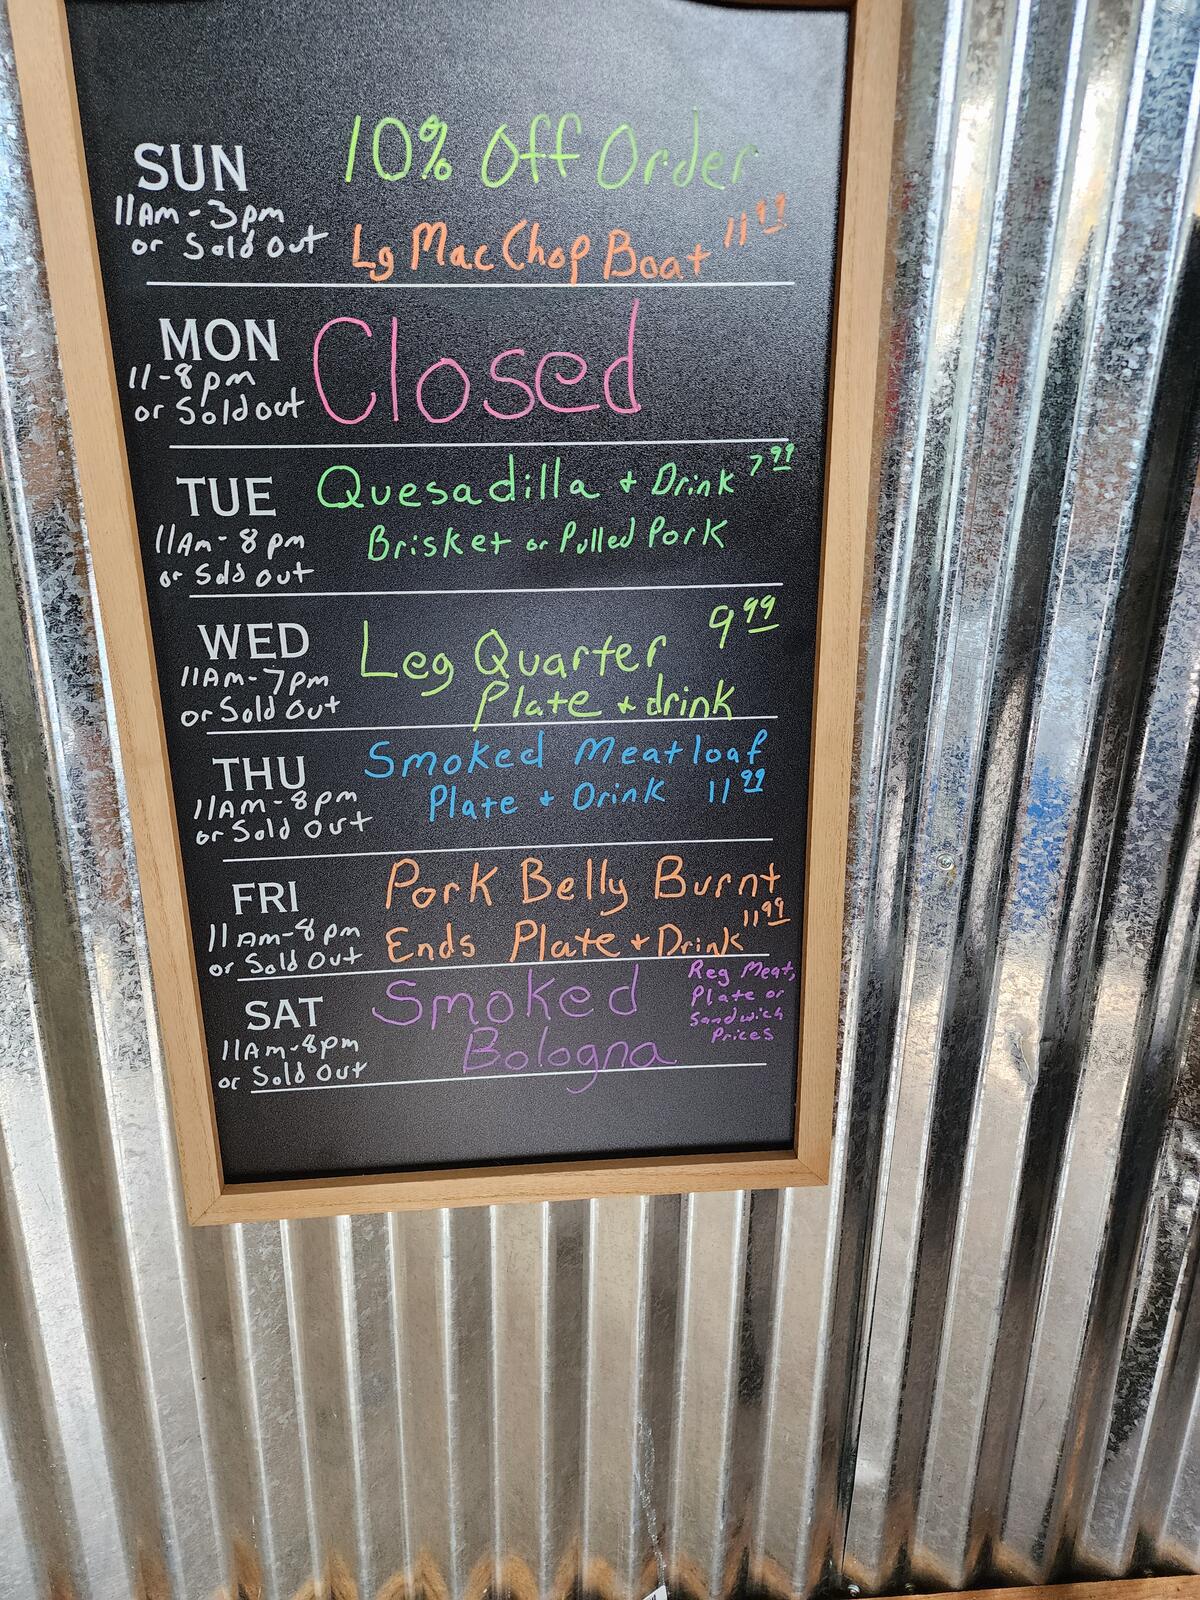 SUN
10% Off Order
11Am-3pm
or Sold Out
Lg Mac Chop Boat 11 99
MON
Closed
11-8pm
or Sold out
TUE
Quesadilla + Drink 7 99
11Am-8pm
or Sold Out
Brisket or Pulled Pork
WED
Leg Quarter 9 99
11Am-7pm
or Sold Out
Plate + drink
THU
Smoked Meatloaf
11AM-8pm
or Sold Out
Plate + Drink 11 99
FRI
Pork Belly Burnt
11Am-8pm
or Sold Out
Ends Plate + Drink 11 99
SAT
Smoked
Bologna
11Am-8pm
or Sold Out
Reg Meat,
Plate or
Sandwich
Prices